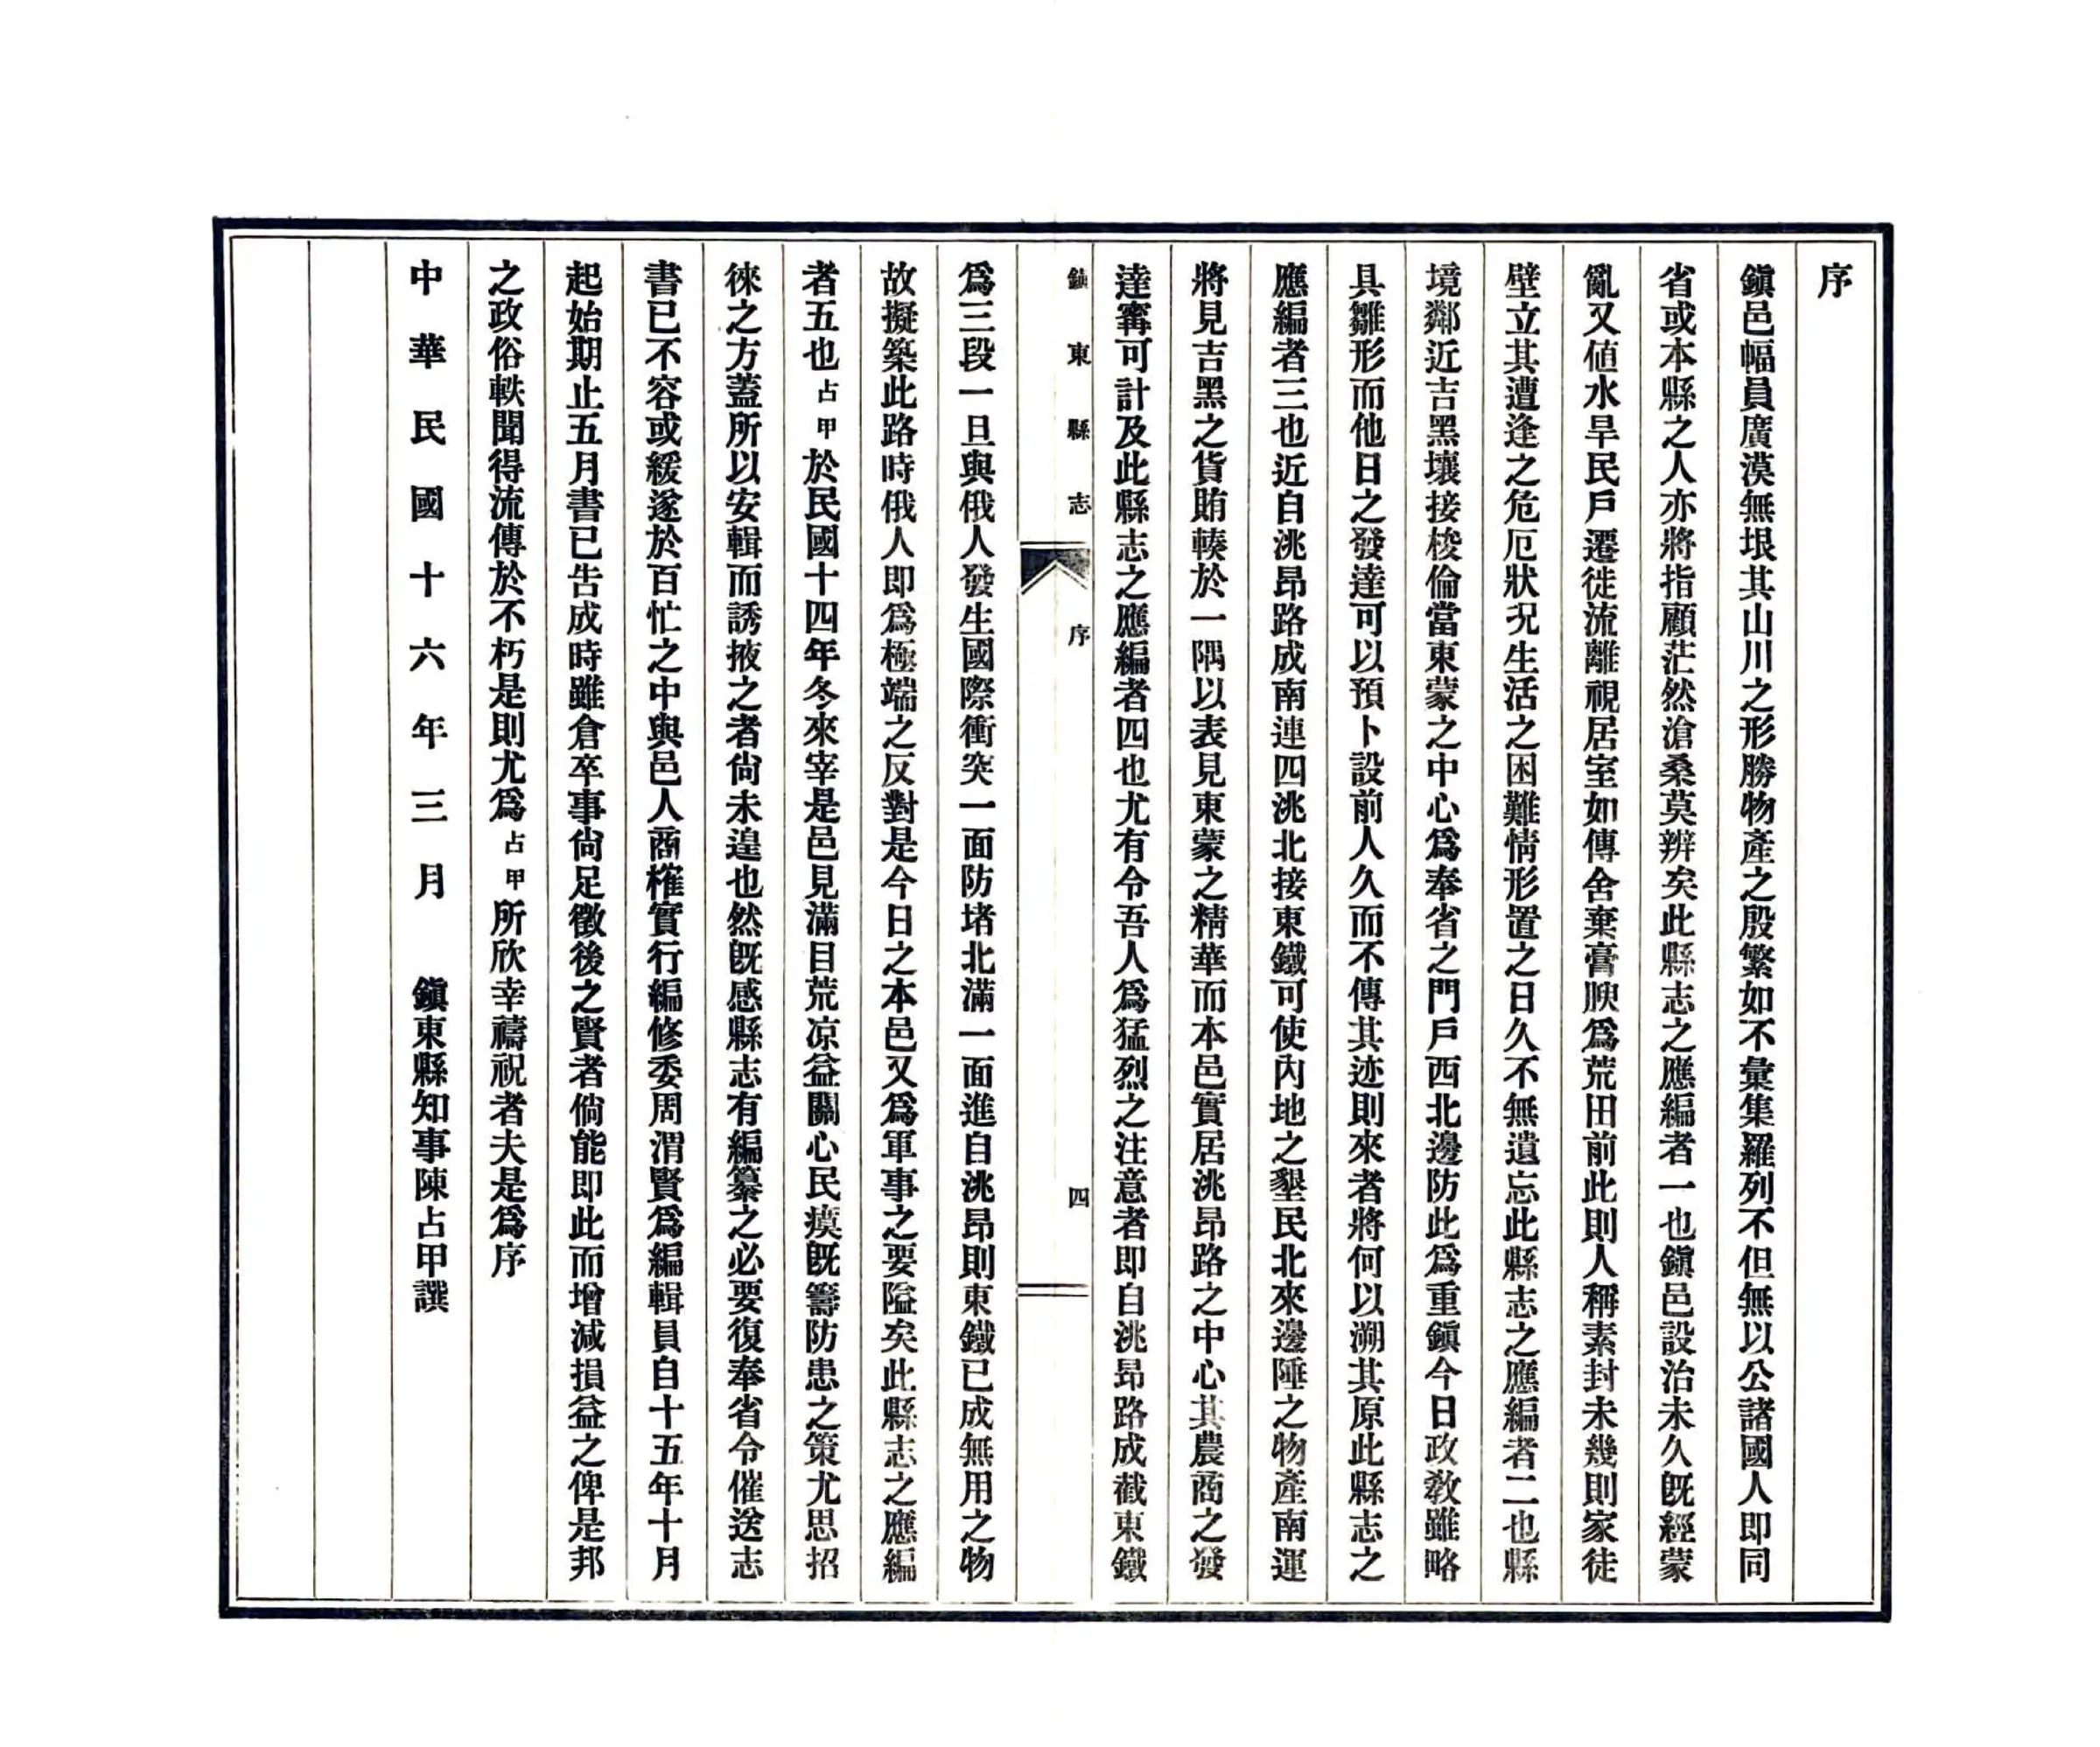 序
鎭邑幅員廣漠無垠其山川之形勝物產之殷繁如不彙集羅列不但無以公諸國人即同
省或本縣之人亦將指顧茫然滄桑莫辨矣此縣志之應編者一也鎭邑設治未久旣經蒙
亂又値水旱民戶遷徙流離視居室如傳舍棄膏腴爲荒田前此則人稱素封未幾則家徒
壁立其遭逢之危厄狀況生活之困難情形置之日久不無遺忘此縣志之應編者二也縣
境鄰近吉黑壤接梭倫當東蒙之中心爲奉省之門戶西北邊防此爲重鎭今日政敎雖略
具雛形而他日之發達可以預卜設前人久而不傳其迹則來者將何以溯其原此縣志之
應編者三也近自洮昂路成南連四洮北接東鐵可使內地之墾民北來邊陲之物產南運
將見吉黑之貨賄輳於一隅以表見東蒙之精華而本邑實居洮昂路之中心其農商之發
達寗可計及此縣志之應編者四也尤有令吾人爲猛烈之注意者即自洮昂路成截東鐵
鎭東縣志 序 四
爲三段一旦與俄人發生國際衝突一面防堵北滿一面進自洮昂則東鐵已成無用之物
故擬築此路時俄人即爲極端之反對是今日之本邑又爲軍事之要隘矣此縣志之應編
者五也占甲於民國十四年冬來宰是邑見滿目荒凉益關心民瘼旣籌防患之策尤思招
徠之方蓋所以安輯而誘掖之者尙未遑也然旣感縣志有編纂之必要復奉省令催送志
書已不容或緩遂於百忙之中與邑人商榷實行編修委周渭賢爲編輯員自十五年十月
起始期止五月書已告成時雖倉卒事尙足徵後之賢者倘能即此而增減損益之俾是邦
之政俗軼聞得流傳於不朽是則尤爲占甲所欣幸禱祝者夫是爲序
中華民國十六年三月 鎭東縣知事陳占甲譔